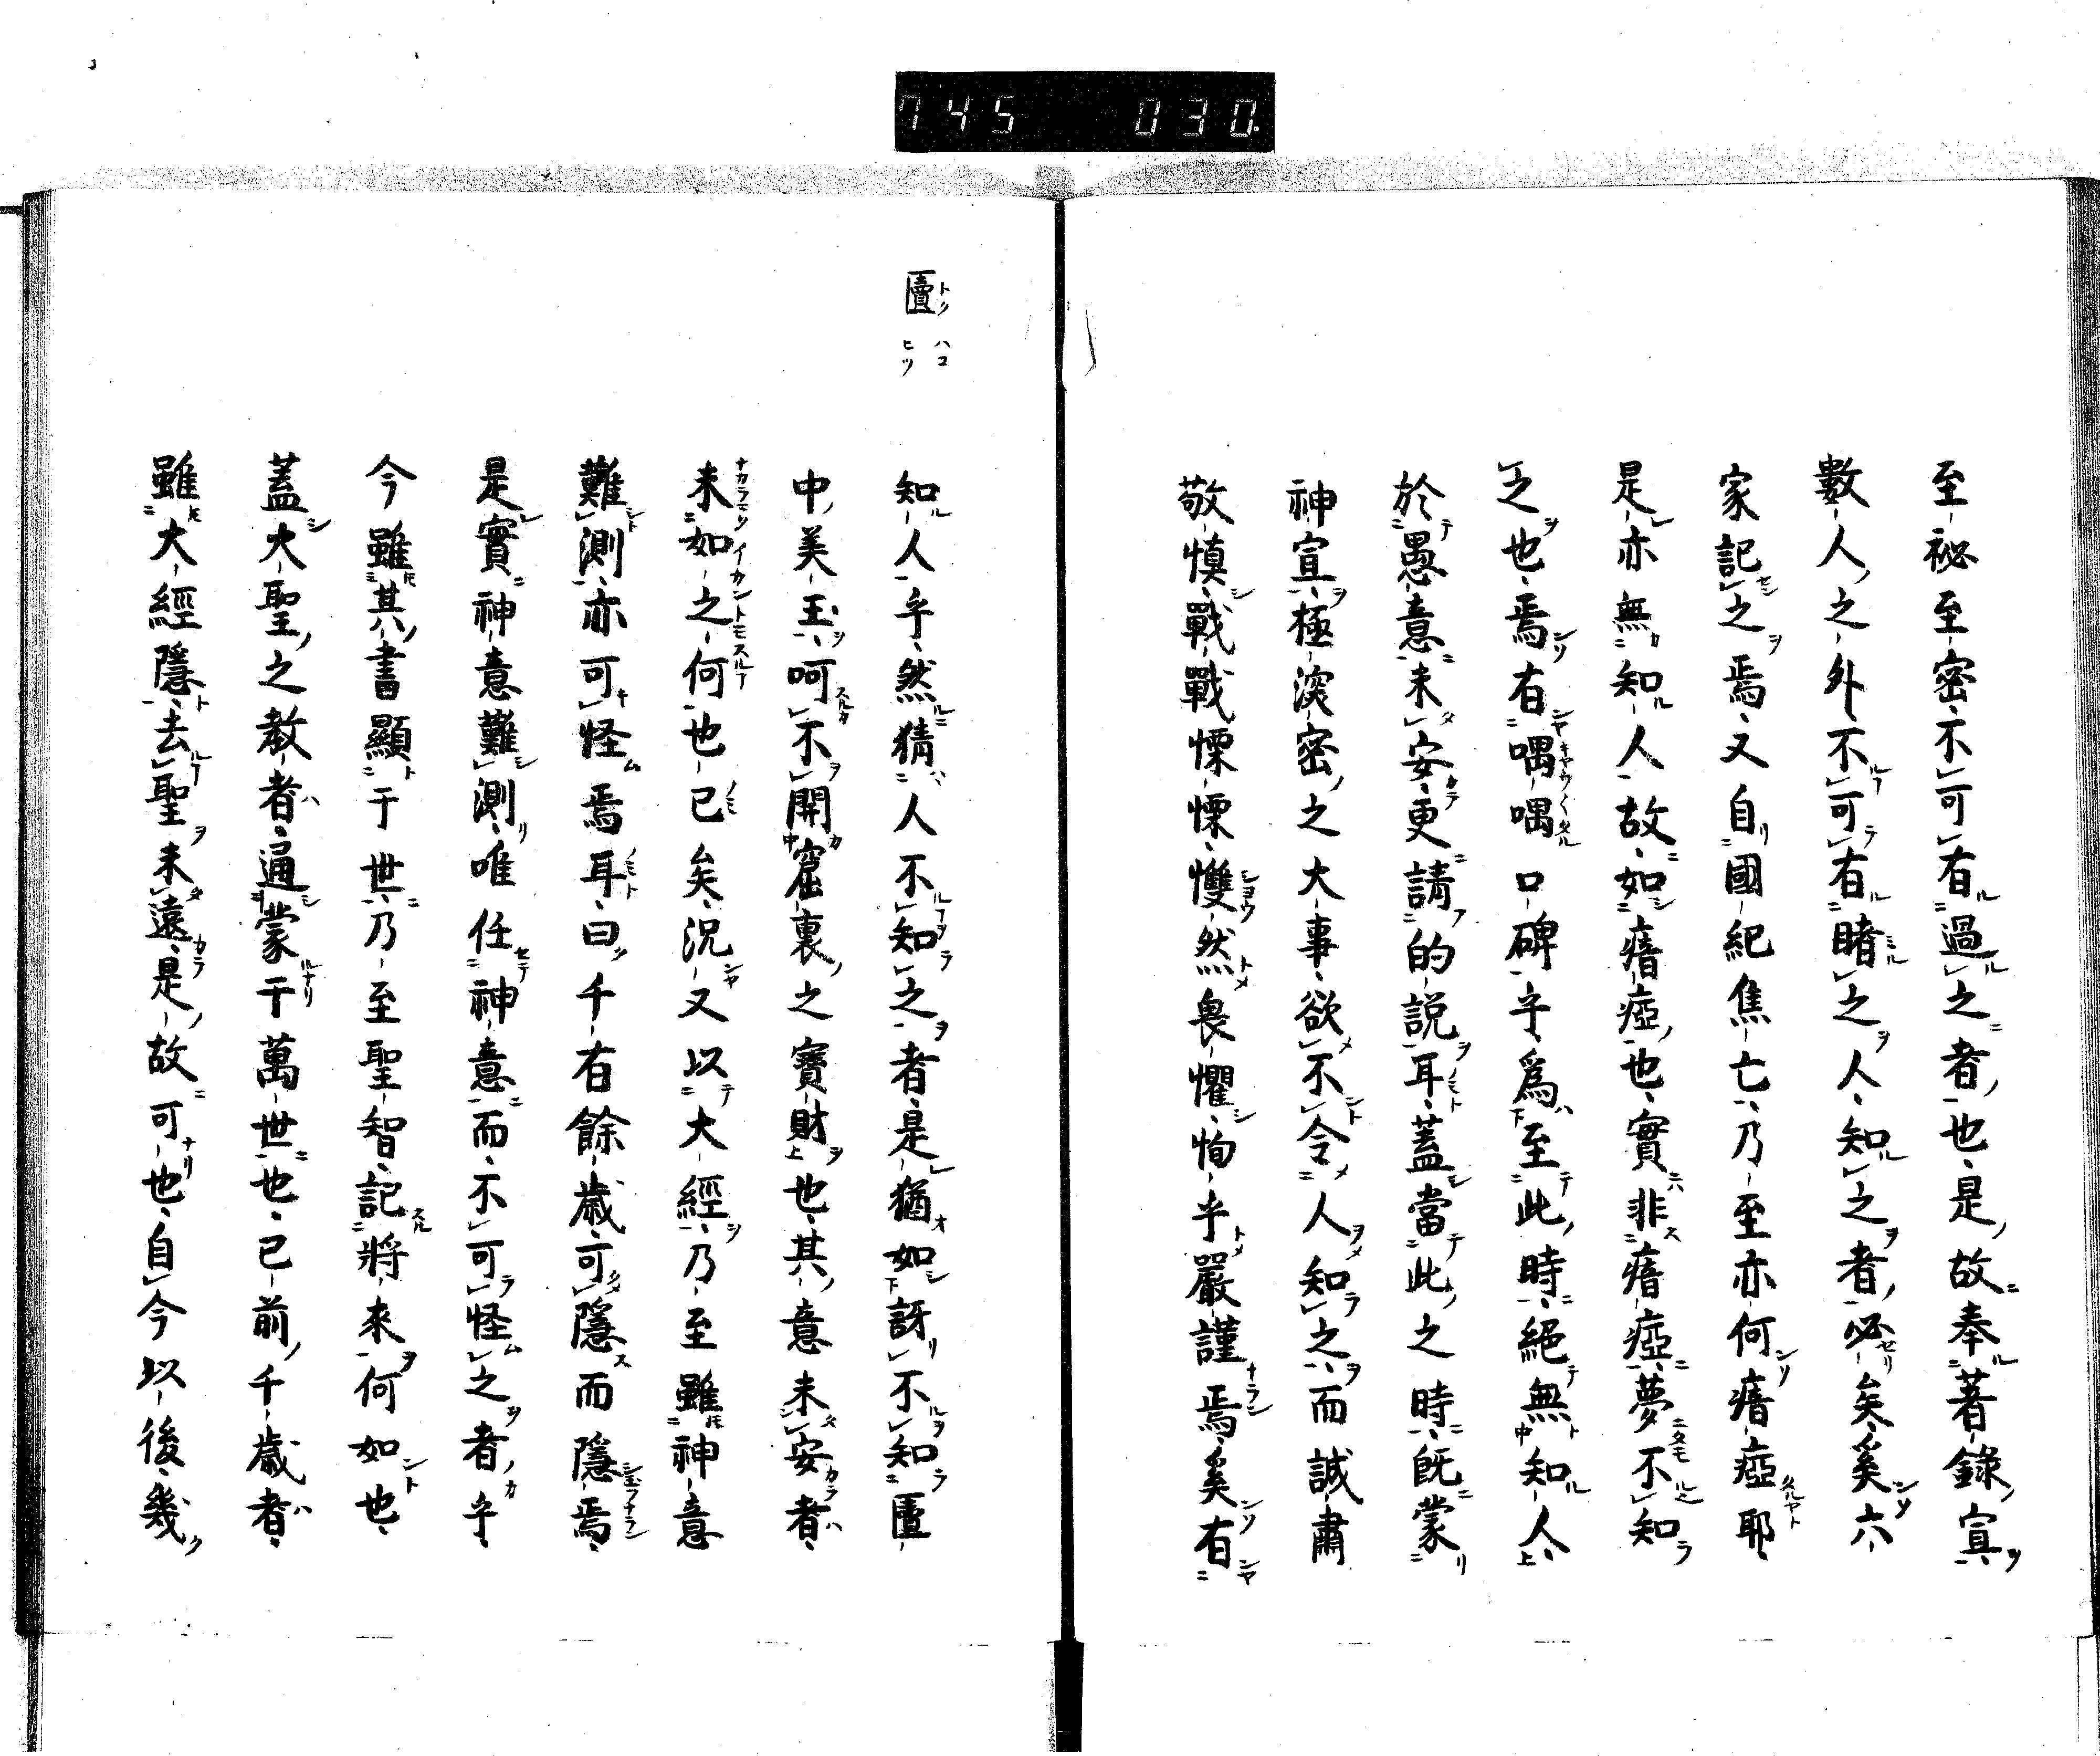 745 030.
至祕至密不可有過之者也是故奉著錄寔
數人之外不可有睹之人知之者必矣奚六
家記之焉又自國紀焦亡乃至亦何瘖瘂耶
是亦無知人故如瘖瘂也實非瘖瘂夢不知
之也焉有喁喁口碑乎爲至此時絕無知人
於愚意未安更請的說耳蓋當此之時既蒙
神宣極深密之大事欲不令人知之而誠肅
敬慎戰戰慄慄慯然畏懼恂乎嚴謹焉奚有
匵 トク ハコ ヒツ
知人乎然猜人不知之者是猶如訝不知匵
中美玉呵不開窟裏之寶財也其意未安者
未如之何也已矣況又以大經乃至雖神意
難測亦可怪焉耳曰千有餘歲可隱而隱焉
是實神意難測唯任神意而不可怪之者乎
今雖其書顯于世乃至聖智記將來何如也
蓋大聖之教者通蒙千萬世也已前千歲者
雖大經隱去聖未遠是故可也自今以後幾